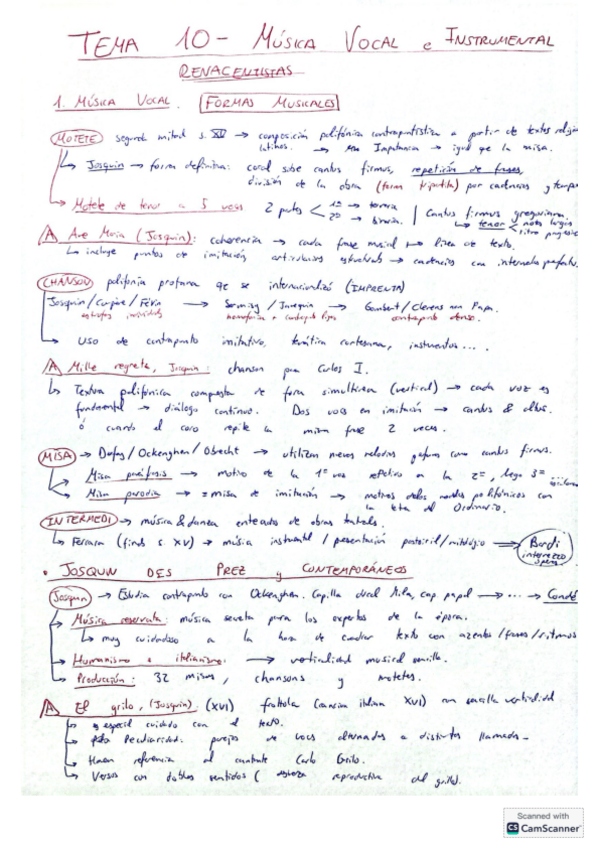 TEMA 10 - MÚSICA VOCAL e INSTRUMENTAL
RENACENTISTAS
1. MÚSICA VOCAL. FORMAS MUSICALES
MOTETE segunda mitad s. XV → composición polifónica contrapuntística a partir de textos
latinos. → Importancia → igual que la misa.
↳ Josquin → forma definitiva: coral sobre cantus firmus, repetición de frases,
división de la obra (forma tripartita) por cadencias y
↳ Motete de tenor a 5 voces 2 partes < 1º → 2º → binaria. | Cantus firmus gregoriano.
↳ tenor < notas largas
ritmo
A Ave María (Josquin): coherencia → cada frase musical → línea de texto.
↳ incluye puntos de imitación articulados → cadencias con intervalos
CHANSON polifonía profana qe se internacionalizó (IMPRENTA)
Josquin / / → Sermisy / Janequin → Gombert / Clemens non Papa.
contrapunto denso.
↳ Uso de contrapunto imitativo, temática cortesana, instrumentos ....
A Mille regretz, Josquin: chanson para Carlos I.
↳ Textura polifónica compuesta de forma simultánea (vertical) → cada voz es
fundamental → diálogo continuo. Dos voces en imitación → cantus & altus.
ó cuando el coro repite la misma frase 2 veces.
MISA → Dufay / Ockenghen / Obrecht → utilizan nuevas melodías como cantus firmus.
↳ Misa paráfrasis → motivo de la 1ª voz repetido en la 2ª, luego 3ª
↳ Misa parodia → = misa de imitación → motivos de los modelos polifónicos con
la letra del Ordinario.
INTERMEDI → música & danza de obras
↳ Ferrara (finales s. XV) → música instrumental / presentación pastoril / mitológico ⇒ Bardi
intermezzo
opera
• JOSQUIN DES PREZ y CONTEMPORÁNEOS
Josquin → Estudia contrapunto con Ockenghen. Capilla ducal Milán, cap. papal → ... → Condé
↳ Música reservata: música secreta para los expertos de la época.
↳ muy cuidadoso a la hora de cuadrar texto con acentos / frases / ritmos
↳ Humanismo e italianismo: → verticalidad musical sencilla.
↳ Producción: 32 misas, chansons y motetes.
A El grilo, (Josquin): (XVI) frottola (canción italiana XVI) con sencilla verticalidad
↳ especial cuidado con el texto.
↳ Peculiaridad: parejas de voces alternadas a distintos llamados.
↳ Hacen referencia al cantante Carlo Grilo.
↳ Versos con dobles sentidos ( reproductiva del grillo).
Scanned with
CS CamScanner